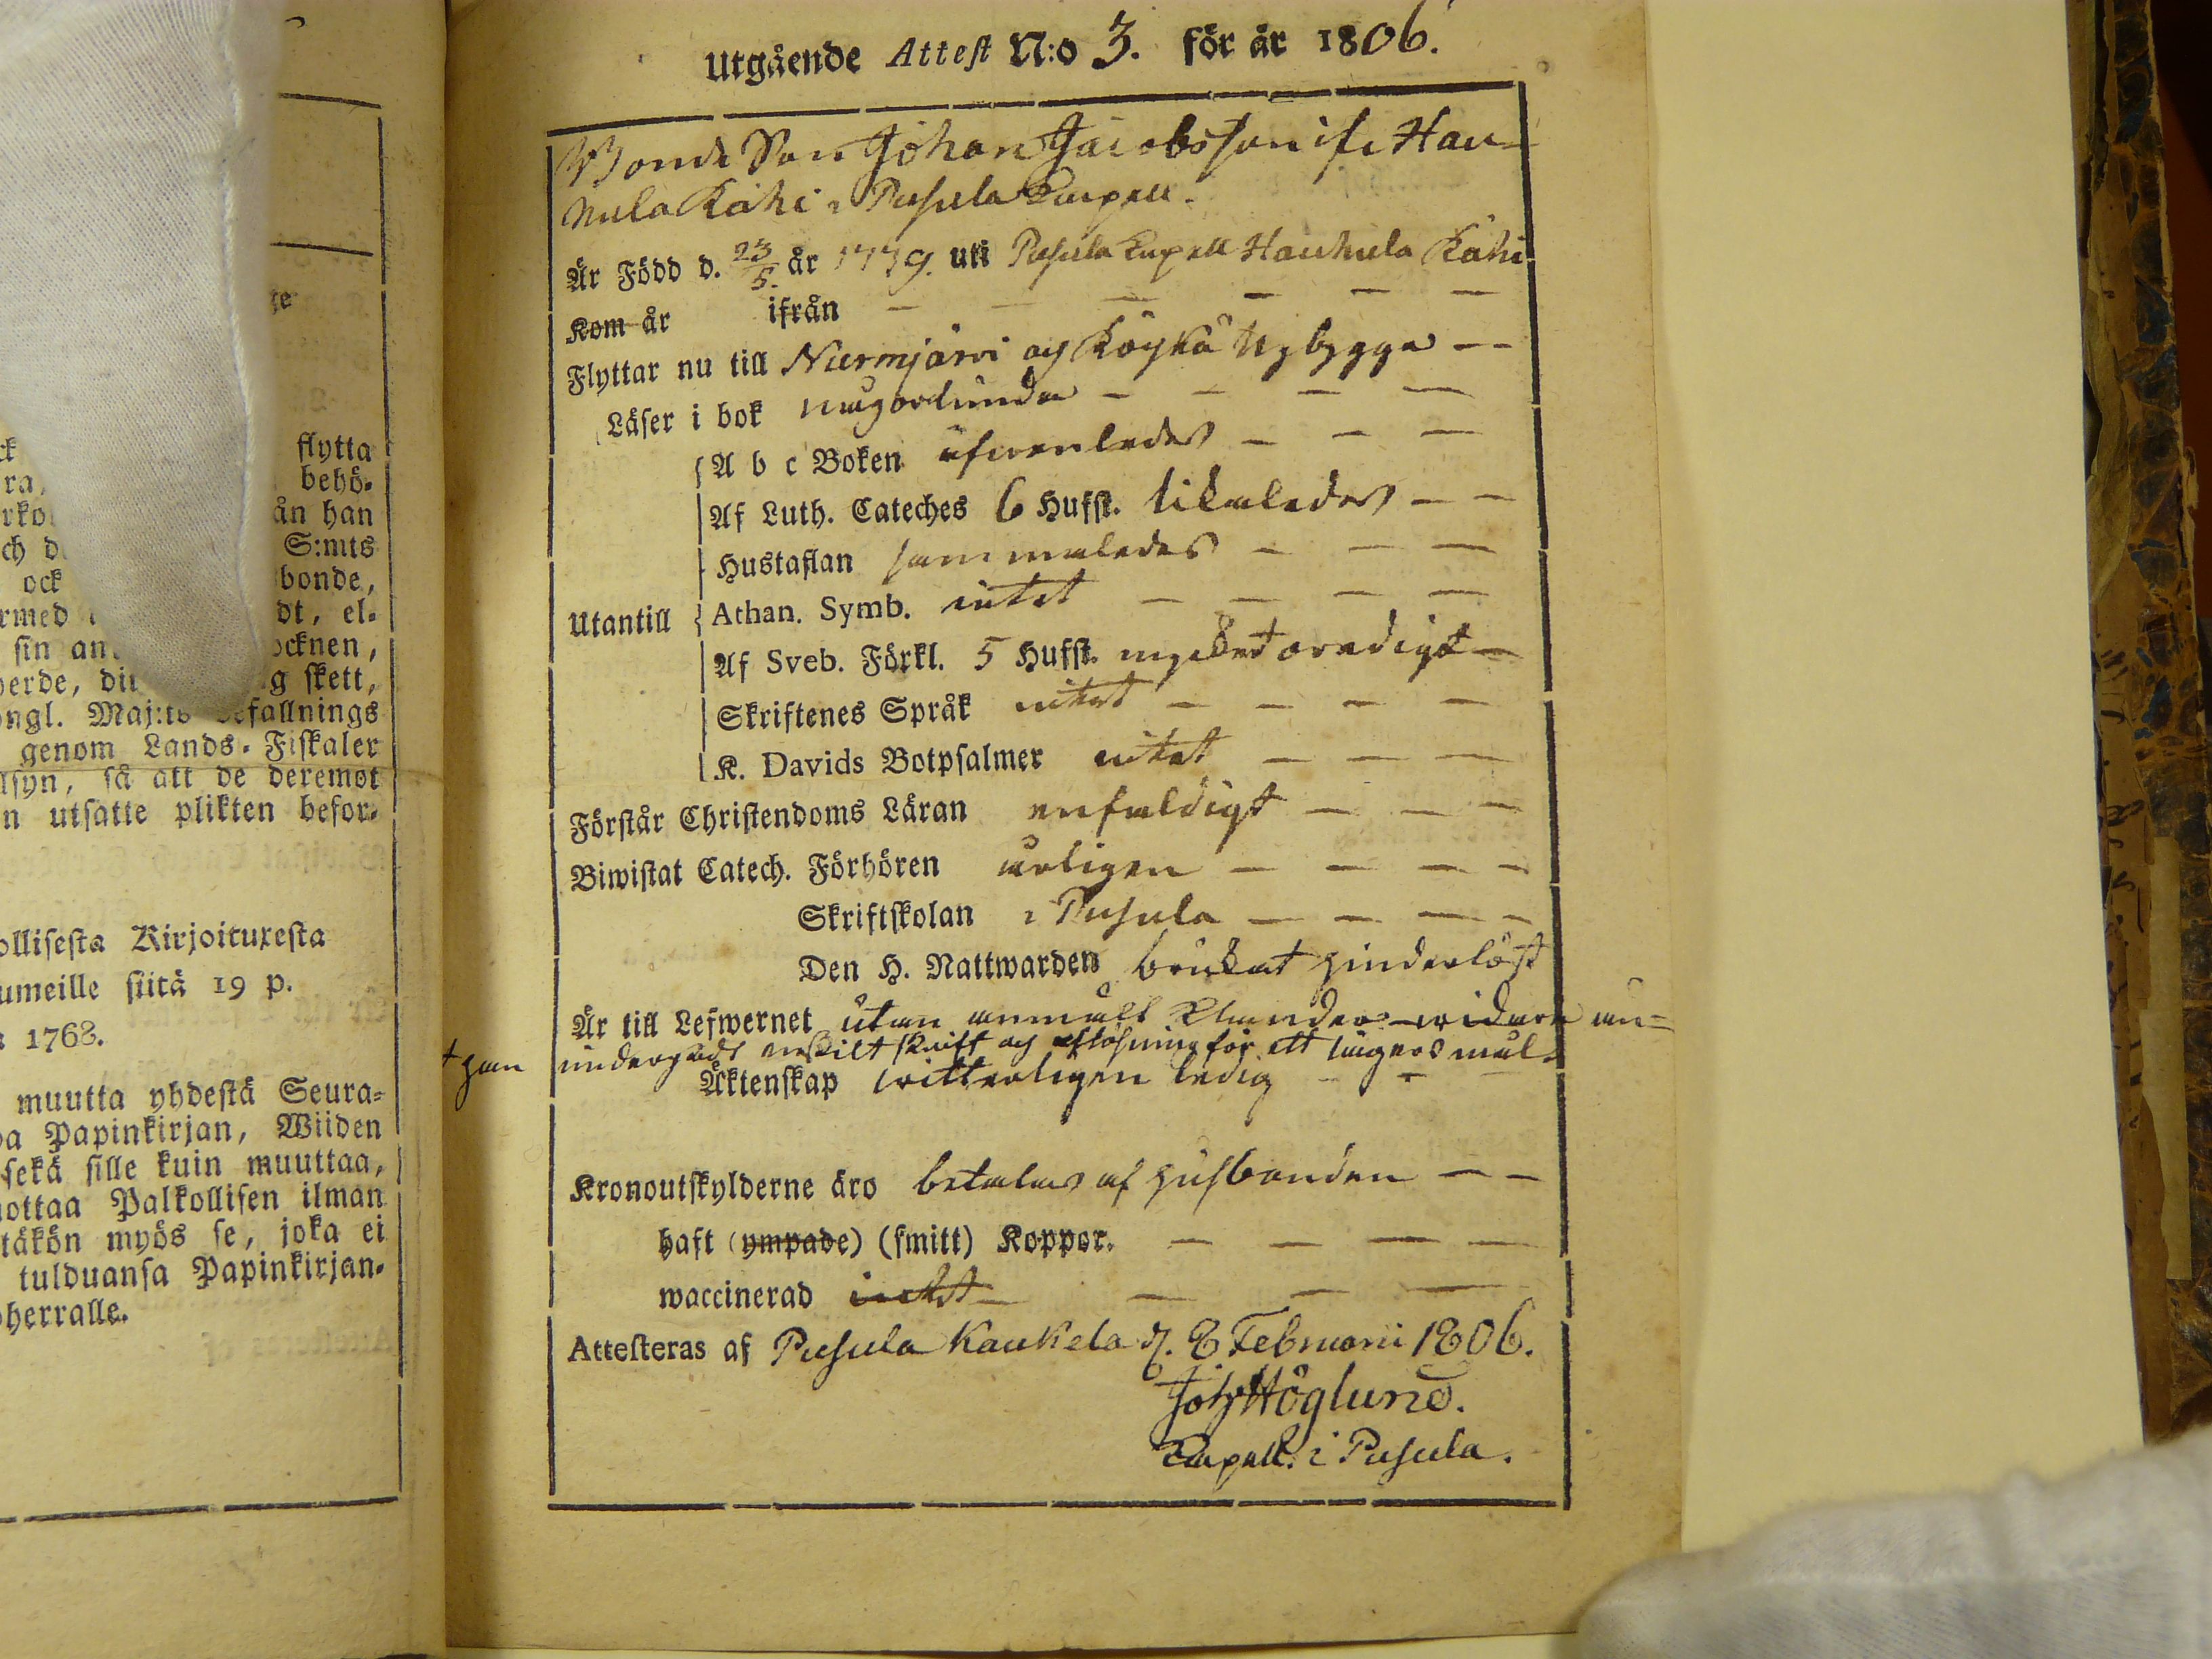 ge
ck flytta
ra, behö-
rko ån han
ch d S:mts
ock bonde,
rmed dt, el-
sin an ocknen,
erde, dit g skett,
ongl. Maj:ts fallnings
genom Lands-Fiskaler
lsyn, så att de deremot
n utsatte plikten befor-
ollisesta Kirjoituxesta
umeille siitä 19 p.
1768.
muutta yhdestä Seura-
a Papinkirjan, Wiiden
sekä sille kuin muuttaa,
ottaa Palkollisen ilman
täkön myös se, joka ei
tulduansa Papinkirjan-
herralle.
Utgående Attest N:o 3. för år 1806.
Bonde Son Johan Jacobsson ifr Hau-
hula Kähi i Pusula Capell.
Är Född d. 23/5. år 1779. uti Pusula Capell Hauhula Kähi
Kom år ifrån — — — — — —
Flyttar nu till Nurmjärvi och Röykä Nybygge — —
Läser i bok någorlunda — — — —
A b c Boken äfwenledes — — —
Af Luth. Cateches 6 Hufst. likaledes — —
Hustaflan sammaledes — — —
Utantill Athan. Symb. intet — — — —
Af Sveb. Förkl. 5 Hufst. mycket oredigt —
Skriftenes Språk intet — — — —
K. Davids Botpsalmer intet — — —
Förstår Christendoms Läran enfaldigt — — —
Biwistat Catech. Förhören årligen — — — —
Skriftskolan i Pusula — — — —
Den H. Nattwarden brukat hinderlöst
Är till Lefwernet utan anmält klander widare än=
+ han undergådt enskilt skrift och aflösning för ett lägersmål.
Äktenskap witterligen ledig — — —
Kronoutskylderne äro betalas af husbonden — —
haft (ympade) (smitt) Koppor. — — — —
waccinerad intet — — — —
Attesteras af Pusula Kaukela d. 8 Februari 1806.
Joh Höglund.
Capell. i Pusula.